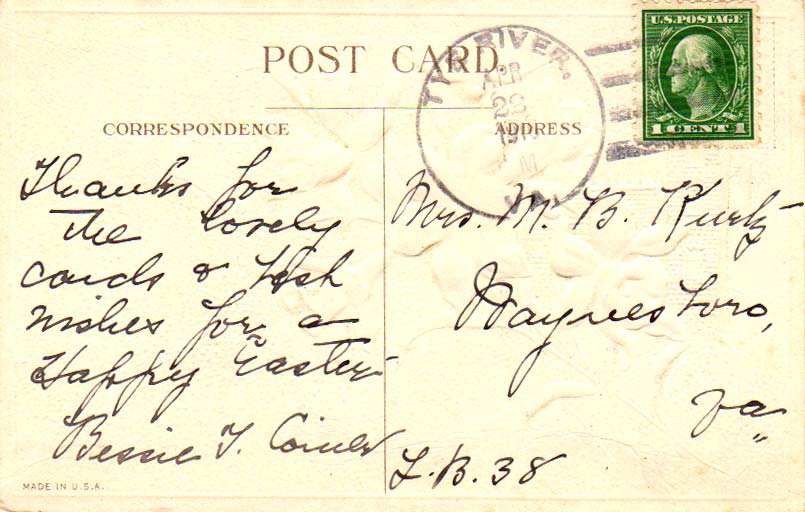 POST CARD.
TYE RIVER,
APR
22
M
VA.
U.S. POSTAGE
1 CENT 1
CORRESPONDENCE
ADDRESS
Thanks for
the lovely
cards &
wishes for a
Happy Easter
Bessie
Mrs. M. B. Kurtz
Waynesboro,
Va
L. B. 38
MADE IN U.S.A.